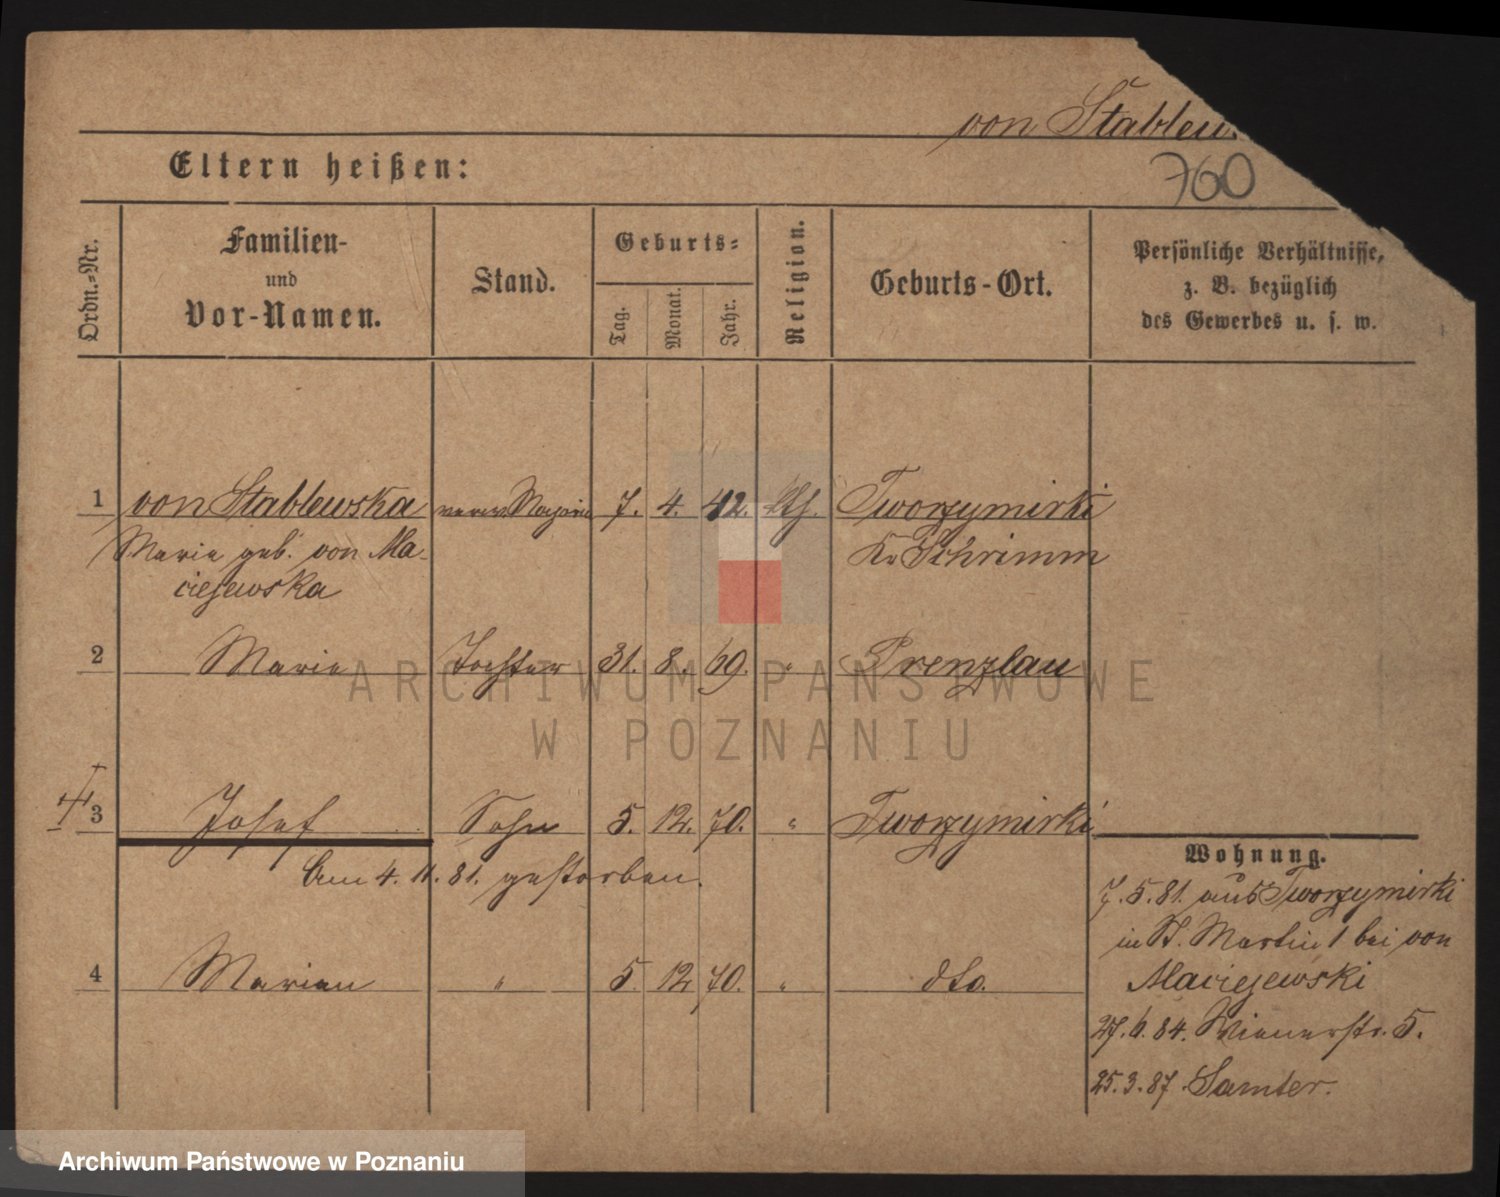 von Stablew
760
Eltern heißen:
Ordn.-Nr.
Familien-
und
Vor-Namen.
Stand.
Geburts-
Tag.
Monat.
Jahr.
Religion.
Geburts-Ort.
Persönliche Verhältnisse,
z. B. bezüglich
des Gewerbes u. s. w.
1 von Stablewska verw. 7. 4. 42. kth. Tworzymirki
Marie geb. von Ma- Kr Schrimm
ciejewska
2 Marie Tochter 31. 8. 69. " Prenzlau
3 Josef Sohn 5. 12. 70. " Tworzymirki
Am 4. 11. 81. gestorben.
4 Marian " 5. 12. 70. " dto.
Wohnung.
7. 5. 81. aus Tworzymirki
in St. Martin 1 bei von
Maciejewski
27. 6. 84. Wienerstr. 5.
25. 3. 87. Samter.
ARCHIWUM PAŃSTWOWE
W POZNANIU
Archiwum Państwowe w Poznaniu